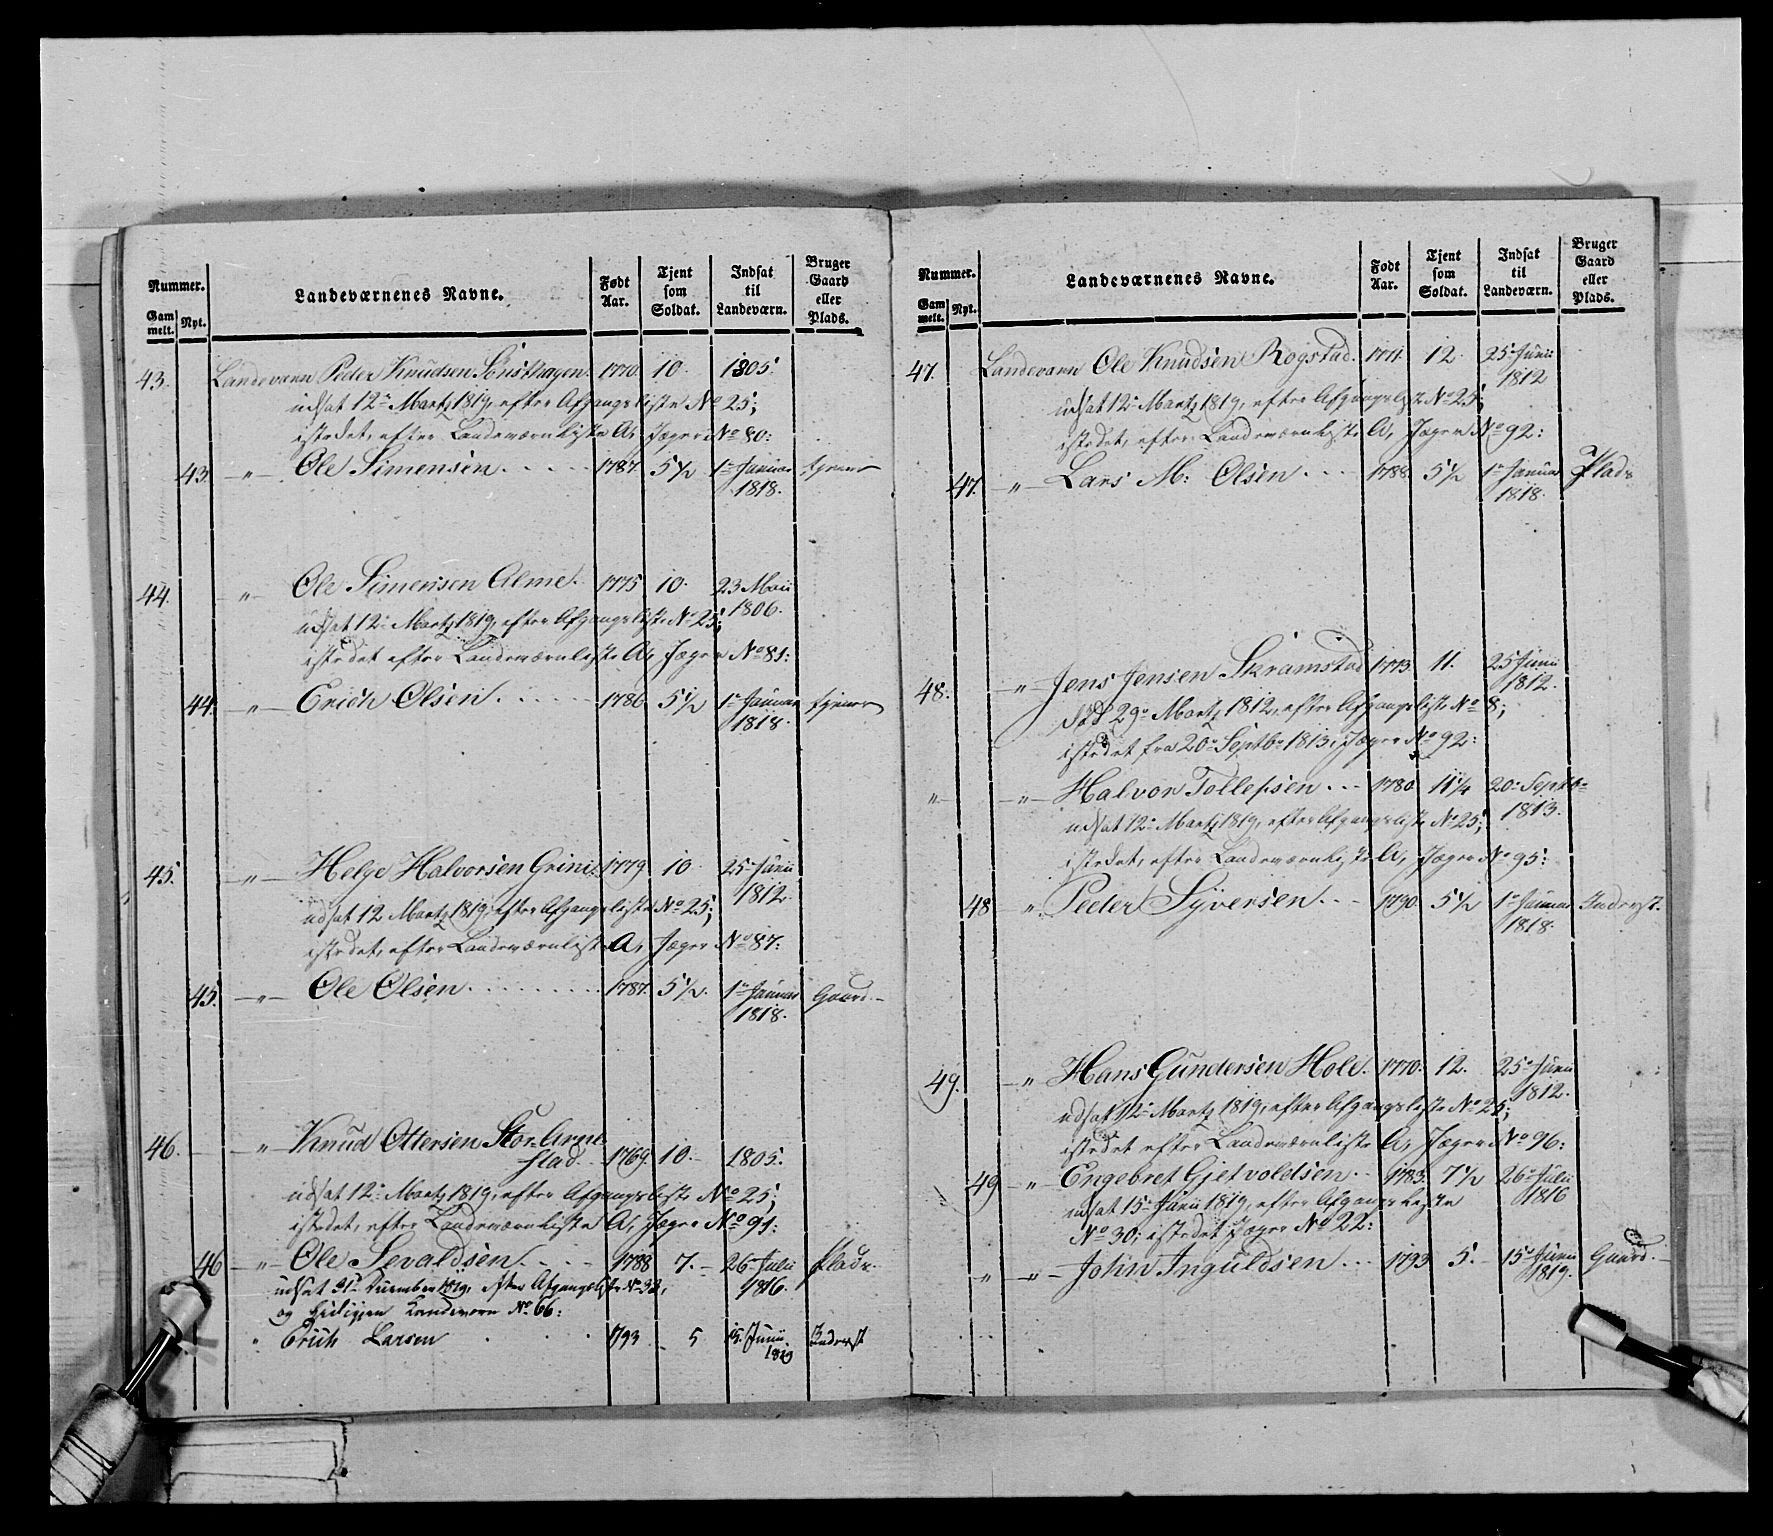 Nummer.
Gam melt.
Nyt.
Landeværnenes Navne.
Født Aar.
Tjent som Soldat.
Indsat til Landeværn.
Bruger Gaard eller Plads.
43. Landeværn Peder Knudsen 1770. 10. 1805.
udsat 12te Martz 1819, efter Afgangsliste No 25;
istedet, efter Landeværnliste A, Jæger No 80:
43. " Ole Simensen. 1787. 5½ 1te Januar tjener
1818.
44. " Ole Simensen Alme. 1775 10. 23 Maii
1806.
udsat 12te Martz 1819, efter Afgangsliste No 25;
istedet efter Landeværnliste A, Jæger No 81:
44. " Erich Olsen. 1786 5½ 1te Januar tjener
1818.
45. " Helge Halvorsen Grini. 1779. 10 25 Junii
1812.
udsat 12 Martz 1819, efter Afgangsliste No 25;
istedet, efter Landeværnliste A, Jæger No 87:
45. " Ole Olsen. 1787. 5½. 1te Januar Gaard.
1818.
46. " Knud Ottersen Stor-Arne-
stad. 1769. 10. 1805.
udsat 12te Martz 1819, efter Afgangsliste No 25;
istedet, efter Landeværnliste A, Jæger No 91:
46 " Ole Sevaldsen. 1788 7. 26 Julii Plads.
1816.
udsat 31te December 1819, efter Afgangsliste No 32,
og Landeværn No 66:
" Erich Larsen 1793 5 15. Junii Inderst
1819
Nummer.
Gam melt.
Nyt.
Landeværnenes Navne.
Født Aar.
Tjent som Soldat.
Indsat til Landeværn.
Bruger Gaard eller Plads.
47. Landeværn Ole Knudsen Rogstad. 1771. 12. 25 Junii
1812
udsat 12te Martz 1819, efter Afgangsliste No 25;
istedet, efter Landeværnliste A, Jæger No 92:
47. " Lars M: Olsen 1788. 5½ 1te Januar Plads
1818.
48. " Jens Jensen Skramstad 1773. 11. 25 Junii
1812.
død 29de Martz 1812, efter Afgangsliste No 8;
istedet fra 20de Septbr 1813, Jæger No 92:
" " Halvor Tollefsen 1780. 11¼ 20de Septbr
1813.
udsat 12te Martz 1819, efter Afgangsliste No 25;
istedet, efter Landeværnliste A, Jæger No 95:
48 " Peder Syversen. 1790. 5½ 1te Januar Inderst.
1818.
49. " Hans Gundersen Hole. 1770. 12. 25 Junii
1812.
udsat 12te Martz 1819, efter Afgangsliste No 25;
istedet efter Landeværnliste A, Jæger No 96:
49 " Engebret Gjetvoldsen 1783. 7½ 26 Julii
1816
udsat 15de Junii 1819, efter Afgangsliste
No 30; istedet Jæger No 22:
" " John Inguldsen 1793 5. 15de Junii Gaard.
1819.